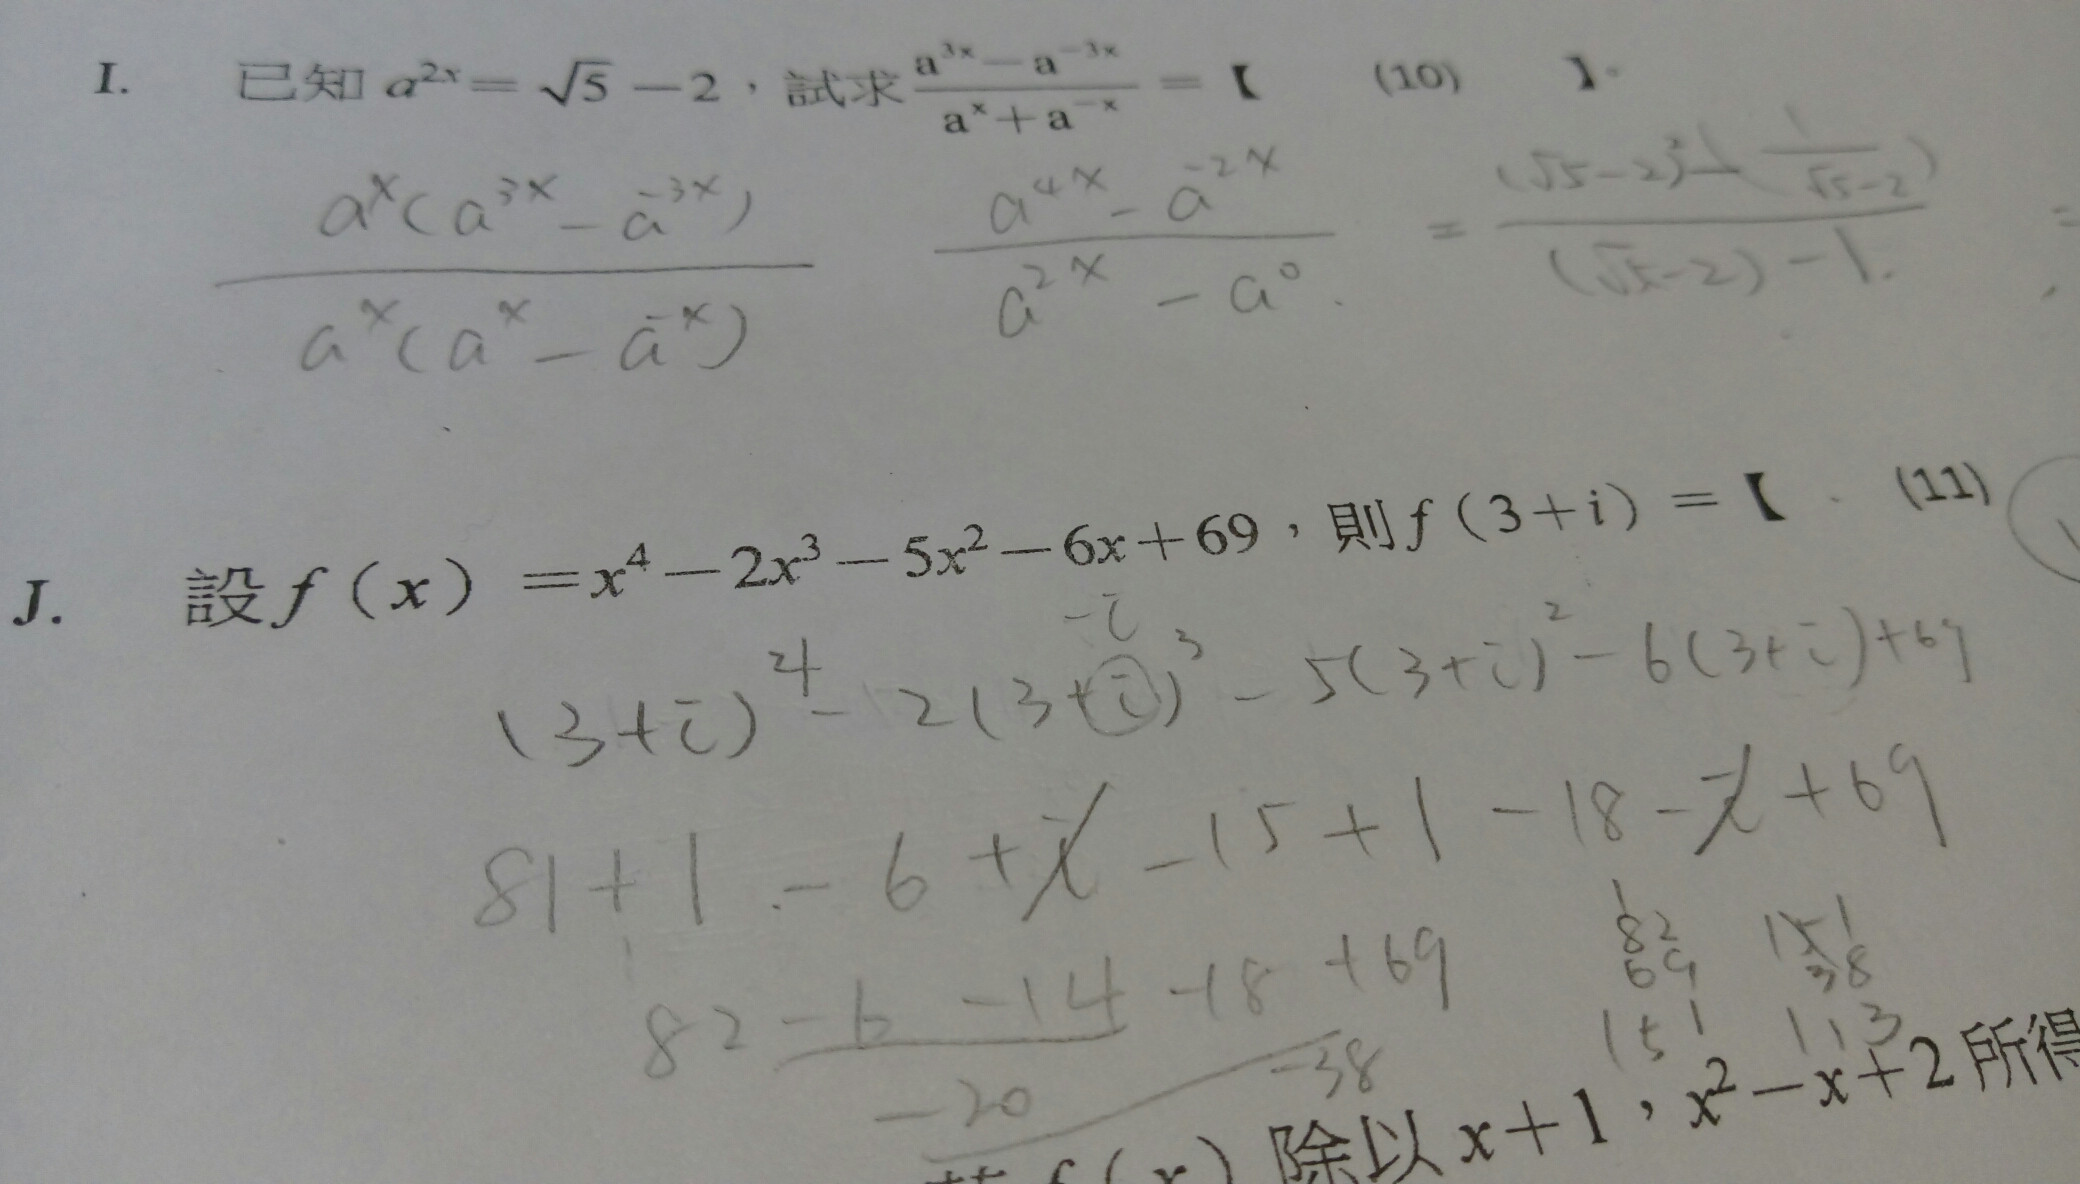 I. 已知 a^{2x} = √5 − 2，試求 \frac{a^{3x} − a^{−3x}}{a^x + a^{−x}} = 【 (10) 】。
\frac{a^x(a^{3x} − a^{−3x})}{a^x(a^x − a^{−x})} \frac{a^{4x} − a^{−2x}}{a^{2x} − a^0.} = \frac{(√5−2)^2 − (\frac{1}{√5−2})}{(√5−2) − 1.} =
J. 設 f (x) = x^4 − 2x^3 − 5x^2 − 6x + 69，則 f (3+i) = 【 (11)
−i
(3+i)^4 − 2(3+i)^3 − 5(3+i)^2 − 6(3+i) + 69
81 + 1 − 6 + i − 15 + 1 − 18 − i + 69
82 − 6 − 14 − 18 + 69
−20 −38
1
82
69
151
151
38
113
f (x) 除以 x+1，x^2−x+2 所得